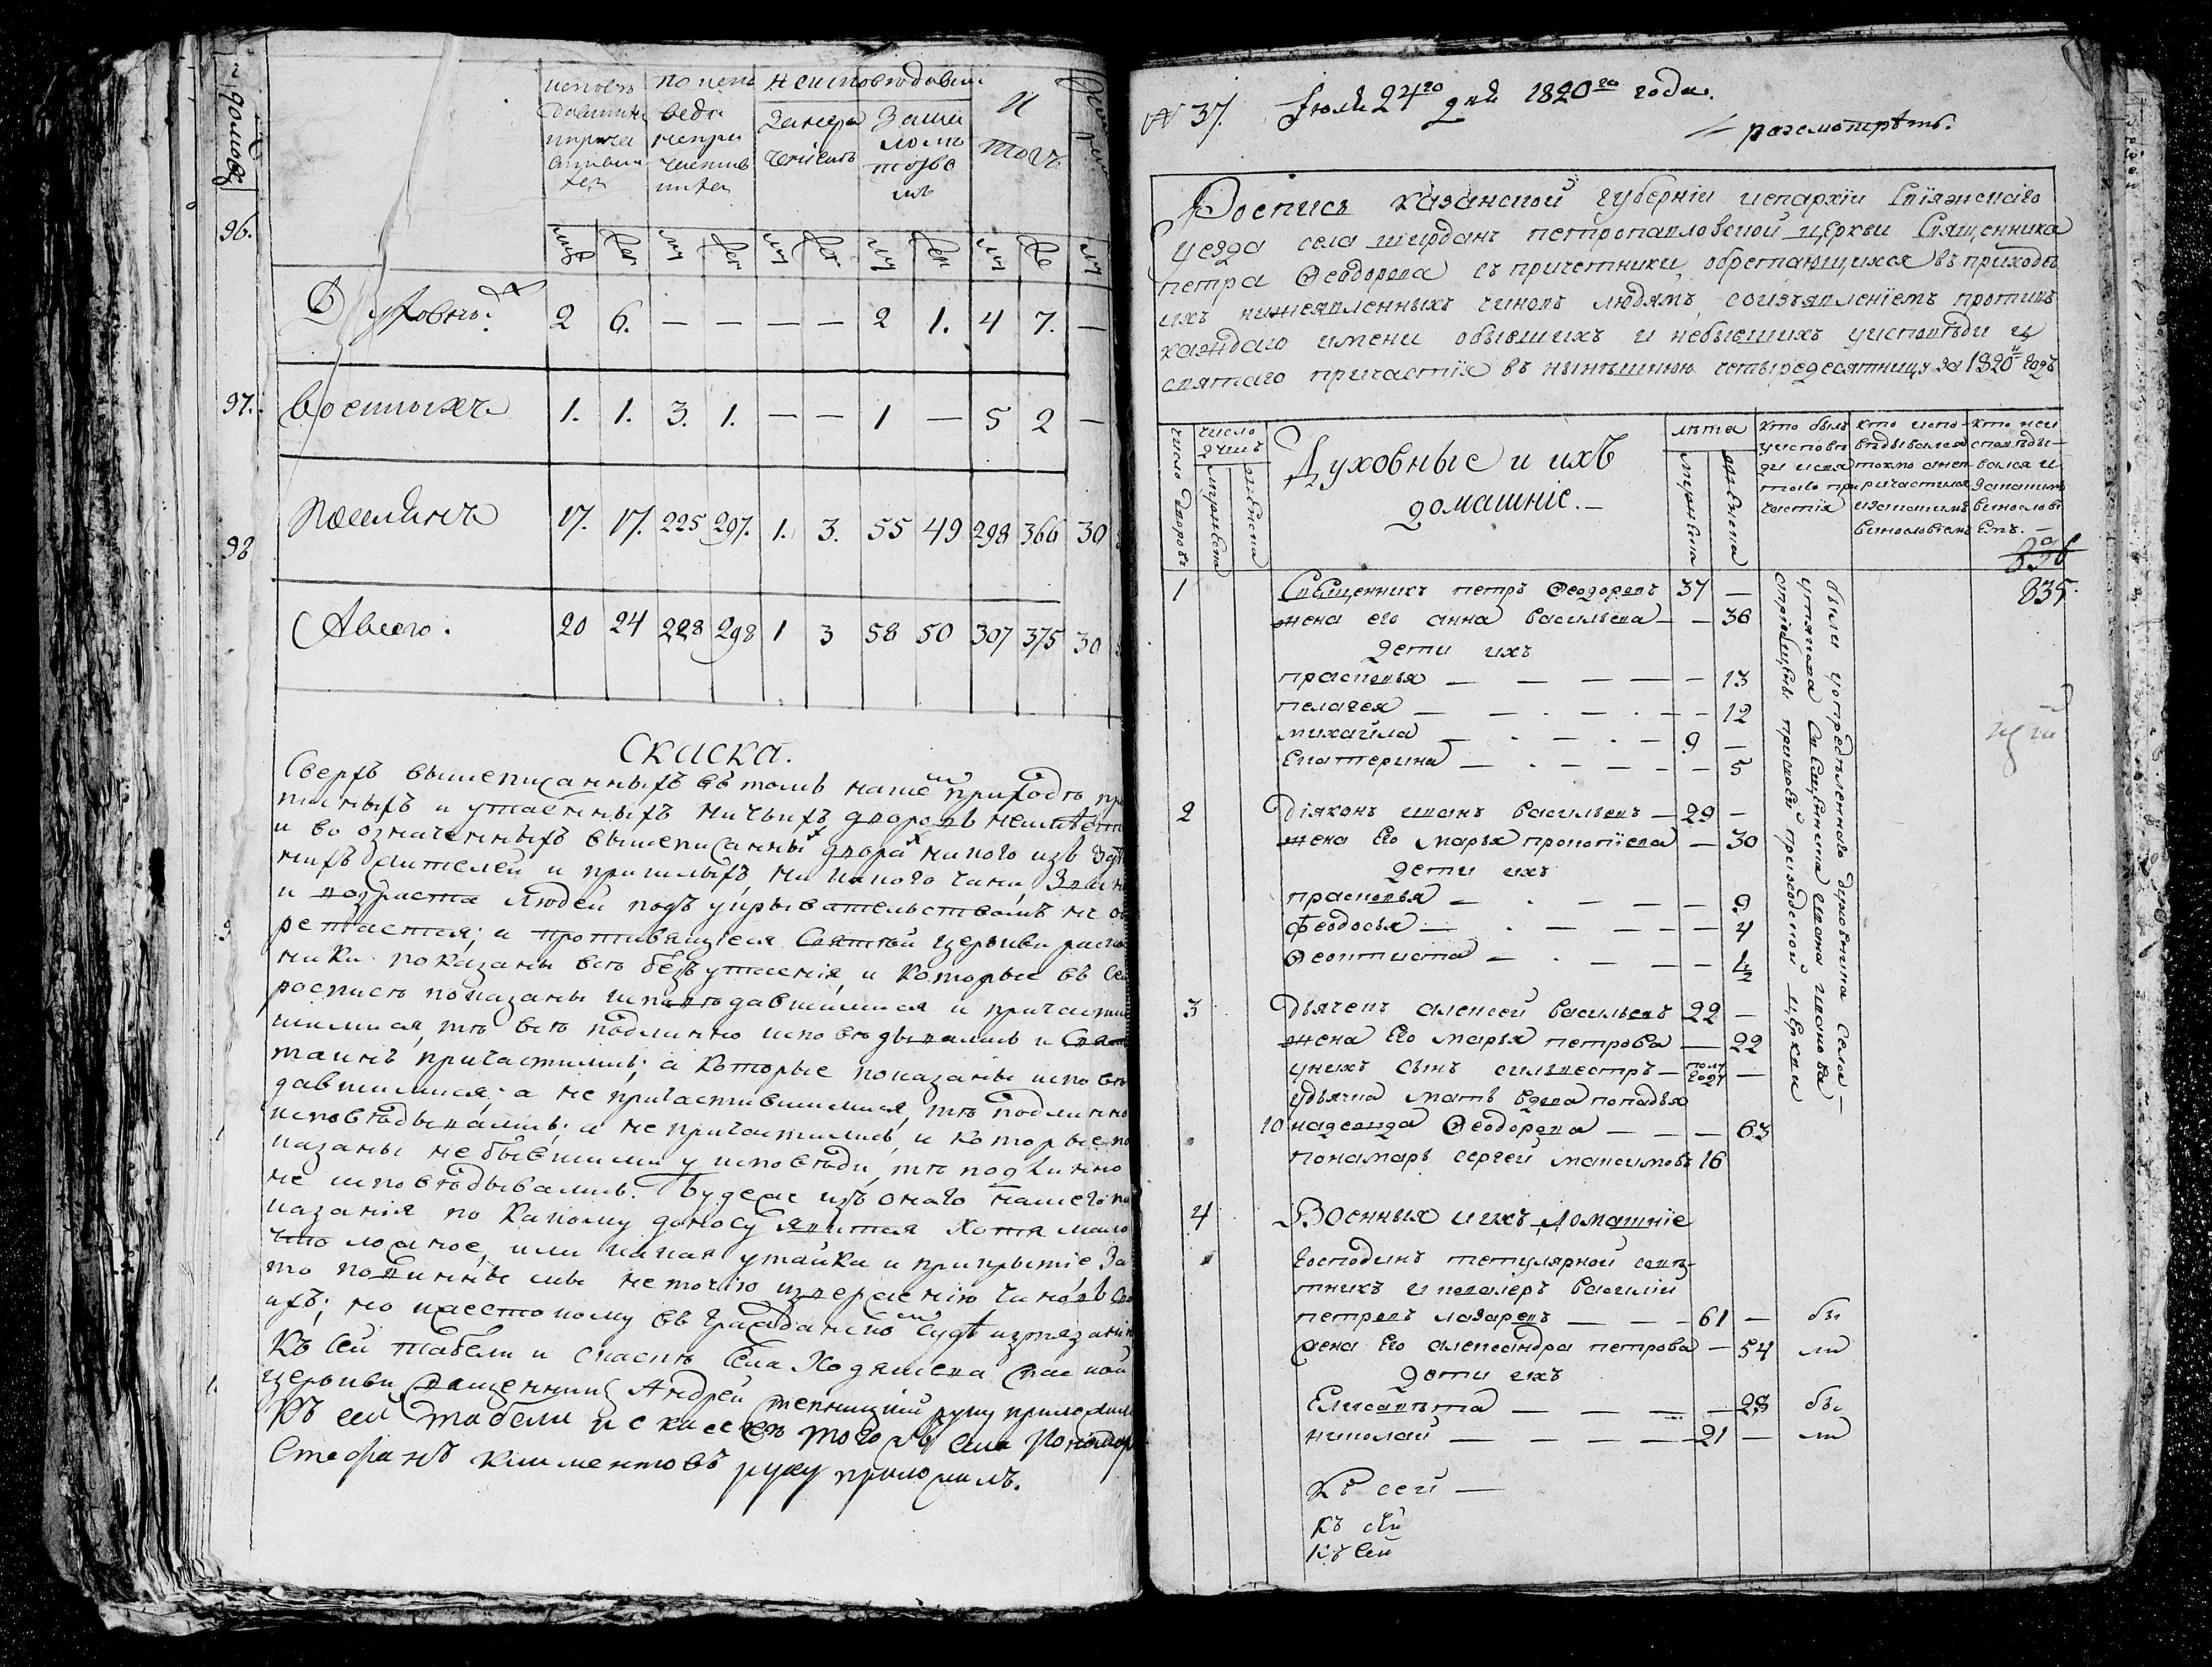 домовъ
96.
97.
98
исповѣ
давшихъ
и прича
стивших
ся
по испо
веда
непри
частив
шихся
неисповѣдавши
Занера
ченіемъ
Зама
лолѣ
тство
мъ
И
тогъ
муж
жен
му
жен
му
жен
му
жен
му
же
му
Духовны
2 6. — — — — 2 1. 4 7. —
военныхъ
1. 1. 3. 1. — — 1 — 5 2 —
посилянъ
17. 17. 225 297. 1. 3. 55 49 298 366 30
А всего.
20 24 228 298 1 3 58 50 307 375 30
Скаска.
Сверхъ вышеписанныхъ въ томъ наше приходѣ про
писныхъ и утаенныхъ ничьихъ дворовъ неимѣет
и во означенныхъ вышеписанны двора никого изъ
нихъ жителей и пришлыхъ ни какого чина, Зван
и возраста людей подъ укрывательствомъ не об
ретается; а противящіеся Святой церькви раско
ники показаны всѣ безъ утаенія, и которые въ Сей
росписѣ показаны исповѣдавшимися и причасти
шимися, тѣ всѣ подлинно исповѣдывались и Свят
таинъ причастились; а которые показаны исповѣ
давшимися; а не причастившимися, тѣ подлинно
исповѣдывались; а не причастились, и которые по
казаны не бывшими у исповѣди, тѣ подлинно
не исповѣдывались. Буде же изъ онаго нашего по
казанія по какому доносу явится хотя мало
что ложное, или какая утайка и прикрытіе За
то повинны мы не точію изверженію чиновъ Сво
ихъ; но и жестокому въ гражданско Судѣ изтязанію
Къ сей табели и скаскѣ Села Ходяшева Спаской
церькви Священникъ Андрей руку приложилъ
Къ сей табели и скаскѣ тогожъ села Пономар
Стефанъ климентовъ руку приложилъ.
№ 37. Іюля 24го дня 1820го года.
разсмотрѣть.
Роспись казанской губерніи иепархіи Свіяжскаго
уезда села ширданъ петропавловской церкви Священника
петра Ѳеодорова съ причетники, обретающихся въ приходѣ
ихъ нижеявленныхъ чиновъ людямъ, соизъявленіемъ противъ
каждаго имени обывшихъ и небывшихъ уисповѣди и
святаго причастія въ нынѣшнюю четыредесятницу за 1820й годъ
число дворовъ
число
душъ
мужеска
женска
Духовные и ихъ
домашніе.
лѣта
мужеска
женска
кто былъ
уисповѣ
ди исвя
таго при
частія
кто испо-
ведывался
токмо анеп
ричастился
икакимъ
винословіемъ
кто неи
споведы-
вался и
закакимъ
винослові
емъ.
836
835.
1 Священникъ петръ Ѳеодоровъ 37 —
жена его анна васильева — 36
дети ихъ
прасковья — 13
пелагея — 12
михайла — 9 —
Екатерина — 5
2 Діяконъ иванъ васильевъ — 29 —
жена Его марья прокопіева — 30
дети ихъ
прасковья — 9
феодосья — 4
Ѳеоктиста — ½
3 Дьячекъ алексей васильевъ 22 —
жена Его марья петрова — 22
унихъ сынъ силвестръ — полу году —
удьячка мать вдова попадья
10 надежда Ѳеодорова — 63
понамарь сергей максимовъ 16
были уопредѣленнаго духовника села
утякова Священника иоанна иванова
априобщены приходской церкви
4 Военныя ихъ домашніе
Господинъ тетулярной совѣ-
тникъ и кавалеръ василій
петровъ лазаревъ — 61 — бы
жена Его александра петрова — 54 ли
дети ихъ
Елисавѣта — 28 бы
николай — 21 — ли
Къ сей —
Къ сей
Къ Сей